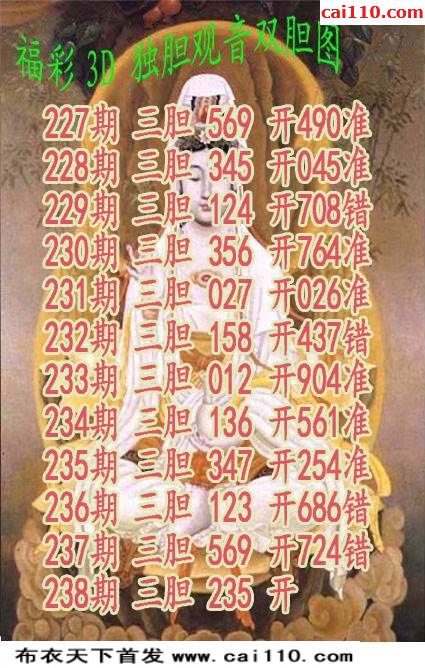 彩经网
cai110.com
福彩3D 独胆观音双胆图
227期 三胆 569 开490准
228期 三胆 345 开045准
229期 三胆 124 开708错
230期 三胆 356 开764准
231期 三胆 027 开026准
232期 三胆 158 开437错
233期 三胆 012 开904准
234期 三胆 136 开561准
235期 三胆 347 开254准
236期 三胆 123 开686错
237期 三胆 569 开724错
238期 三胆 235 开
布衣天下首发 www.cai110.com